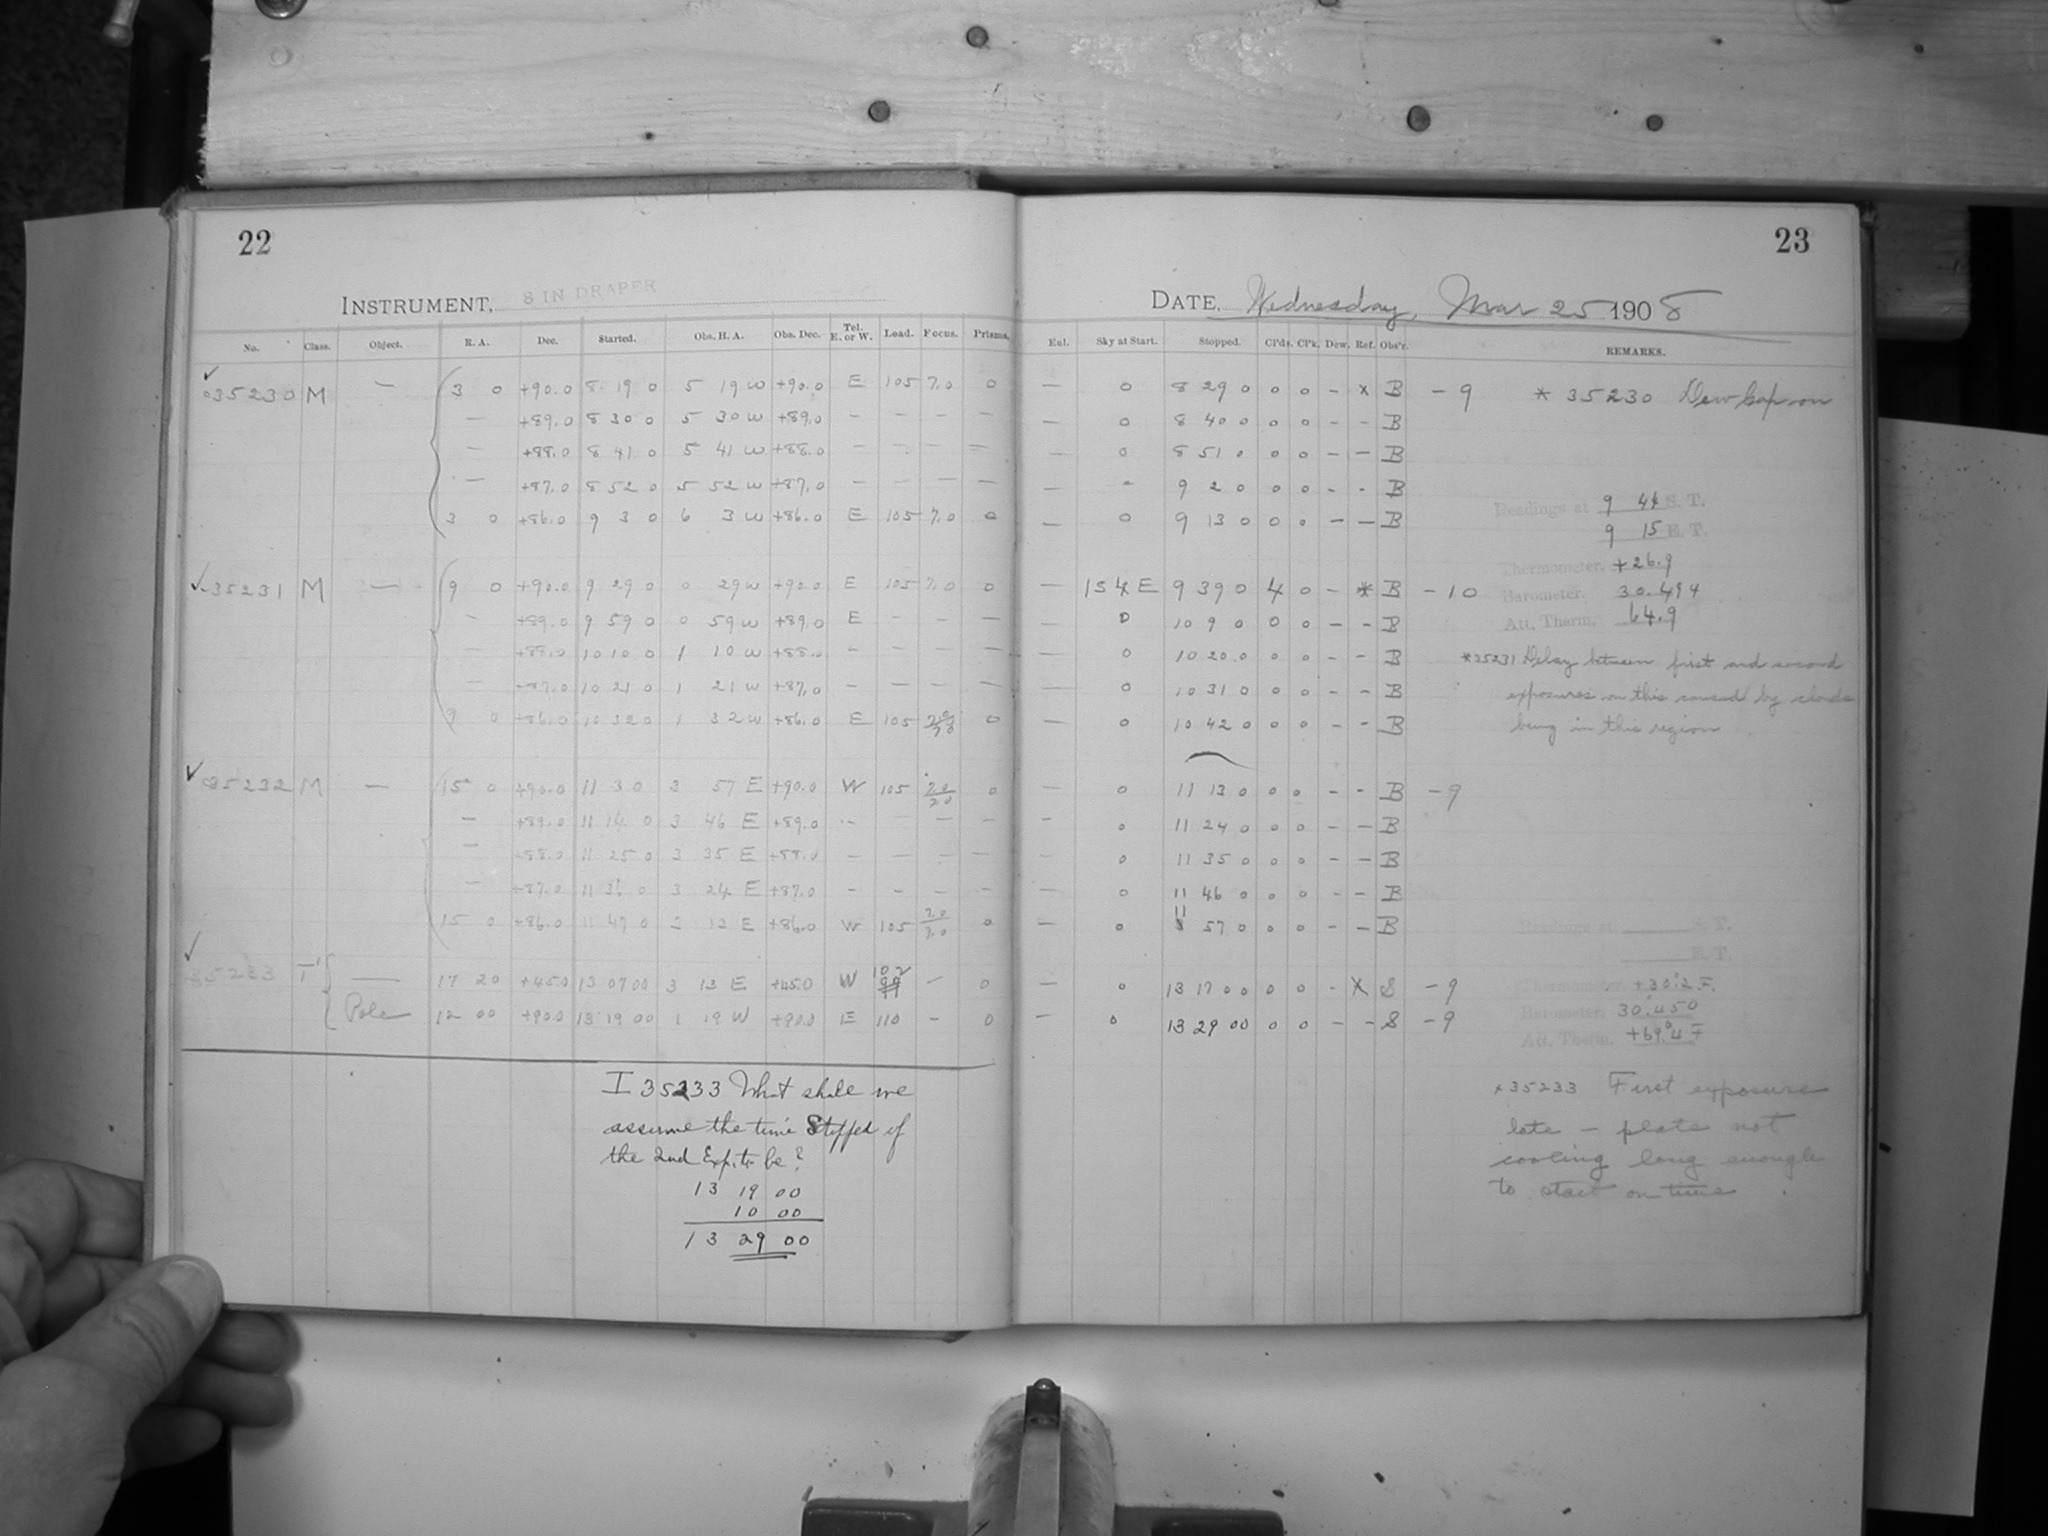 22
INSTRUMENT, 8 IN DRAPER
No. Class. Object. R. A. Dec. Started. Obs. H. A. Obs. Dec. Tel. E. or W. Load. Focus. Prisms.
35230 M — 3 0 +90.0 8 19 0 5 19 W +90.0 E 105 7.0 0
— +89.0 8 30 0 5 30 W +89.0 — — — —
— +88.0 8 41 0 5 41 W +88.0 — — — —
— +87.0 8 52 0 5 52 W +87.0 — — — —
3 0 +86.0 9 3 0 6 3 W +86.0 E 105 7.0 0
35231 M — 9 0 +90.0 9 29 0 0 29 W +90.0 E 105 7.0 0
— +89.0 9 59 0 0 59 W +89.0 E — — —
— +88.0 10 10 0 1 10 W +88.0 — — — —
— +87.0 10 21 0 1 21 W +87.0 — — — —
9 0 +86.0 10 32 0 1 32 W +86.0 E 105 7.0 0
35232 M — 15 0 +90.0 11 3 0 3 57 E +90.0 W 105 7.0 0
— +89.0 11 14 0 3 46 E +89.0 — — —
— +88.0 11 25 0 3 35 E +88.0 — — — —
— +87.0 11 36 0 3 24 E +87.0 — — — —
15 0 +86.0 11 47 0 3 13 E +86.0 W 105 7.0 / 7.0 0
35233 T' — 17 20 +45.0 13 07 00 3 13 E +45.0 W 102 — 0
Pole 12 00 +90.0 13 19 00 1 19 W +90.0 E 110 — 0
I 35233 What shall we
assume the time Stopped if
the 2nd Exp. to be?
13 19 00
10 00
13 29 00
23
DATE, Wednesday, Mar 25 1908
Enl. Sky at Start. Stopped. Cl'ds. Cl'k. Dew. Ref. Obs'r. REMARKS.
— 0 8 29 0 0 0 - x B -9 * 35230 Dew Cap on
— 0 8 40 0 0 0 - - B
— 0 8 51 0 0 0 - - B
— - 9 2 0 0 0 - - B
— 0 9 13 0 0 0 - - B
Readings at 9 44 S. T.
9 15 E. T.
Thermometer, +26.9
— 1S4E 9 39 0 4 0 - * B -10 Barometer, 30.494
— 0 10 9 0 0 0 - - B Att. Therm. 64.9
— 0 10 20 0 0 0 - - B *35231 Delay between first and second
— 0 10 31 0 0 0 - - B exposures on this caused by clouds
— 0 10 42 0 0 0 - - B being in this region
— 0 11 13 0 0 0 - - B -9
- 0 11 24 0 0 0 - - B
0 11 35 0 0 0 - - B
— 0 11 46 0 0 0 - - B
— 0 11 57 0 0 0 - - B Readings at S. T.
E. T.
— 0 13 17 00 0 0 - x S -9 Thermometer, +30.2 F.
— 0 13 29 00 0 0 - - S -9 Barometer, 30.450
Att. Therm. +69.4 F
x 35233 First exposure
late — plate not
cooling long enough
to start on time